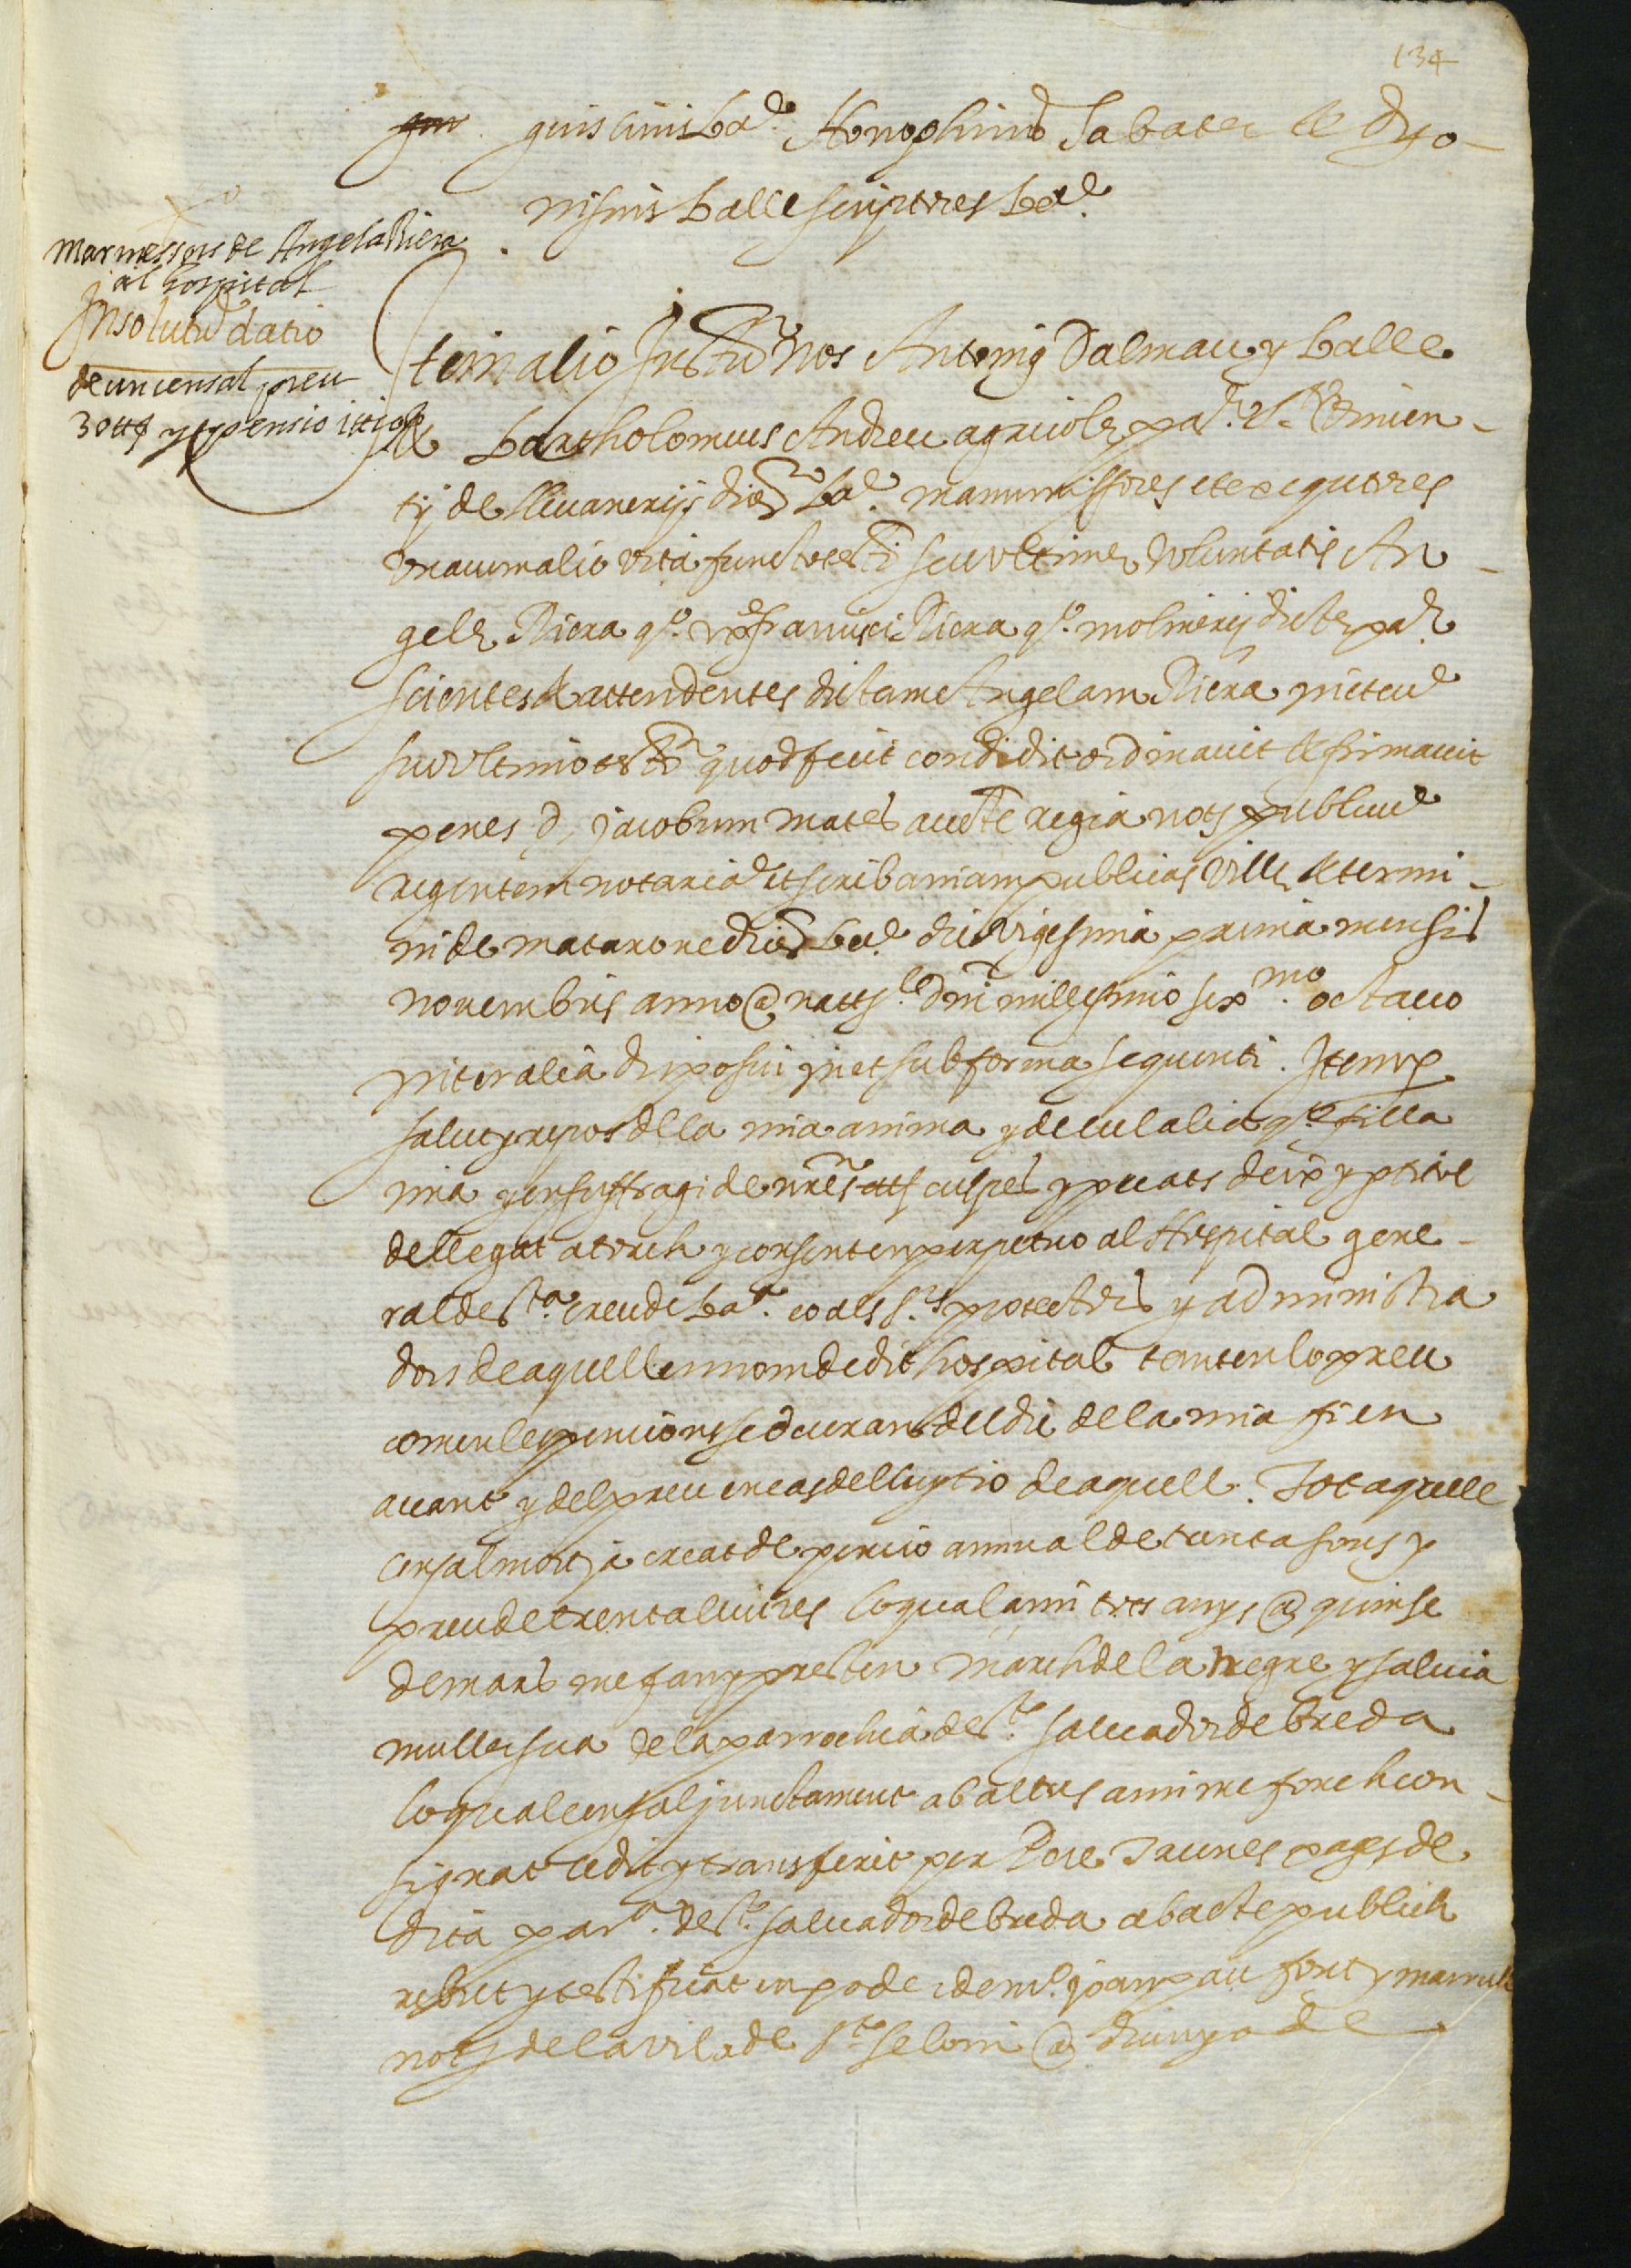 134
guis civis bar. Honophrius Sabater & Dyo-
nisius balle scriptores bar.
marmessors de Angela Riera
al hospital
Insolutu datio
de un censal preu
30 ₶ y pensio 1 ₶ 10 s
Item alio Instro nos Antonig Dalmau y balle
& bartholomeus Andreu agricole par. St. Vincen-
tij de llevaneriis dioc bar. manumissores et exequutores
una cum alio vita functo testi seu ultime voluntatis An-
gele Riera qo. ux francisci Riera qo. molinerij dicte par
scientes & attendentes dictam Angelam Riera in ceu
suo ultimo testo quod fecit condidit ordinavit & firmavit
penes d. jacobum mates aucte regia nots publicu
regentem notaria et scribaniam publicas ville & termi-
ni de matarone dioc bar. die vigesima prima mensis
novembris anno @ natts dni millesimo sex mo. octavo
inter alia disposuisse in et sub forma sequenti. Item p
salut y repos de la mia anima y de eulalia qo filla
mia y en suffragi de nres culpes y peccats deix y per titol
de llegat atorch y consent en perpetuo al Hospital gene-
ral de sta. creu de bar. co als srs protectors y administra
dors de aquell en nom de dit hospital tant en lo preu
com en les pencions se deuran del dia de la mia fi en
avant y del preu en cas de lluytio de aquell. Tot aquell
censal mort ja creat de pencio annual de trenta sous y
preu de trenta lliures lo qual a mi tots anys @ quinse
de mars me fan y presten March de la negre y salvia
muller sua de la parrochia de St. salvador de breda
lo qual censal junctament ab altres a mi me fonch con-
signat cedit y transferit per Pere Traunes pages de
dita para. de St. salvador de breda ab acte publich
rebut y testificat en poder de mo. joan pau font y marruls
nots de la vila de St seloni @ diny o de